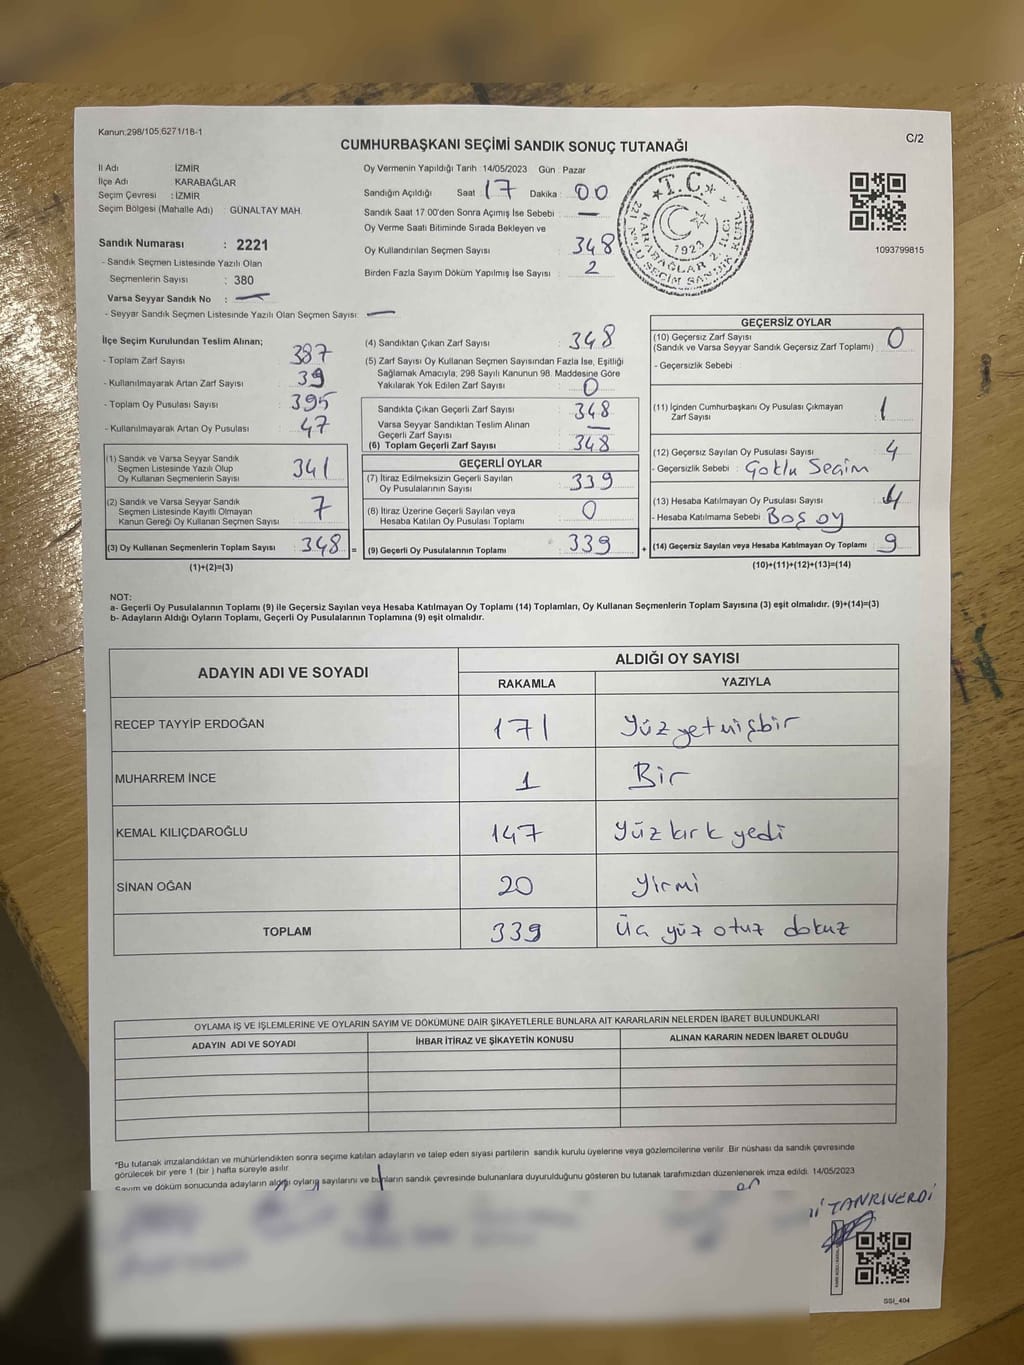 Kanun;298/105;6271/18-1
C/2
CUMHURBAŞKANI SEÇİMİ SANDIK SONUÇ TUTANAĞI
İl Adı İZMİR
İlçe Adı KARABAĞLAR
Seçim Çevresi : İZMİR
Seçim Bölgesi (Mahalle Adı) : GÜNALTAY MAH.
Sandık Numarası : 2221
- Sandık Seçmen Listesinde Yazılı Olan
Seçmenlerin Sayısı : 380
Varsa Seyyar Sandık No : —
- Seyyar Sandık Seçmen Listesinde Yazılı Olan Seçmen Sayısı: —
Oy Vermenin Yapıldığı Tarih 14/05/2023 Gün : Pazar
Sandığın Açıldığı Saat 17 Dakika : 00
Sandık Saat 17:00'den Sonra Açımış İse Sebebi : —
Oy Verme Saati Bitiminde Sırada Bekleyen ve
Oy Kullandırılan Seçmen Sayısı : 348
Birden Fazla Sayım Döküm Yapılmış İse Sayısı : 2
T.C.
1923
KARABAĞLAR 2. İLÇE
2221 NOLU SEÇİM SANDIK KURULU
1093799815
İlçe Seçim Kurulundan Teslim Alınan;
- Toplam Zarf Sayısı : 387
- Kullanılmayarak Artan Zarf Sayısı : 39
- Toplam Oy Pusulası Sayısı : 395
- Kullanılmayarak Artan Oy Pusulası : 47
(1) Sandık ve Varsa Seyyar Sandık
Seçmen Listesinde Yazılı Olup
Oy Kullanan Seçmenlerin Sayısı : 341
(2) Sandık ve Varsa Seyyar Sandık
Seçmen Listesinde Kayıtlı Olmayan
Kanun Gereği Oy Kullanan Seçmen Sayısı : 7
(3) Oy Kullanan Seçmenlerin Toplam Sayısı : 348
(1)+(2)=(3)
(4) Sandıktan Çıkan Zarf Sayısı : 348
(5) Zarf Sayısı Oy Kullanan Seçmen Sayısından Fazla İse, Eşitliği
Sağlamak Amacıyla; 298 Sayılı Kanunun 98. Maddesine Göre
Yakılarak Yok Edilen Zarf Sayısı : 0
Sandıkta Çıkan Geçerli Zarf Sayısı : 348
Varsa Seyyar Sandıktan Teslim Alınan
Geçerli Zarf Sayısı : —
(6) Toplam Geçerli Zarf Sayısı : 348
GEÇERLİ OYLAR
(7) İtiraz Edilmeksizin Geçerli Sayılan
Oy Pusulalarının Sayısı : 339
(8) İtiraz Üzerine Geçerli Sayılan veya
Hesaba Katılan Oy Pusulası Toplamı : 0
= (9) Geçerli Oy Pusulalarının Toplamı : 339 +
GEÇERSİZ OYLAR
(10) Geçersiz Zarf Sayısı
(Sandık ve Varsa Seyyar Sandık Geçersiz Zarf Toplamı) : 0
- Geçersizlik Sebebi :
(11) İçinden Cumhurbaşkanı Oy Pusulası Çıkmayan
Zarf Sayısı : 1
(12) Geçersiz Sayılan Oy Pusulası Sayısı : 4
- Geçersizlik Sebebi : Çoklu Seçim
(13) Hesaba Katılmayan Oy Pusulası Sayısı : 4
- Hesaba Katılmama Sebebi : Boş oy
(14) Geçersiz Sayılan veya Hesaba Katılmayan Oy Toplamı : 9
(10)+(11)+(12)+(13)=(14)
NOT:
a- Geçerli Oy Pusulalarının Toplamı (9) ile Geçersiz Sayılan veya Hesaba Katılmayan Oy Toplamı (14) Toplamları, Oy Kullanan Seçmenlerin Toplam Sayısına (3) eşit olmalıdır. (9)+(14)=(3)
b- Adayların Aldığı Oyların Toplamı, Geçerli Oy Pusulalarının Toplamına (9) eşit olmalıdır.
ADAYIN ADI VE SOYADI ALDIĞI OY SAYISI
RAKAMLA YAZIYLA
RECEP TAYYİP ERDOĞAN 171 Yüzyetmişbir
MUHARREM İNCE 1 Bir
KEMAL KILIÇDAROĞLU 147 Yüzkırk yedi
SİNAN OĞAN 20 Yirmi
TOPLAM 339 Üç yüz otuz dokuz
OYLAMA İŞ VE İŞLEMLERİNE VE OYLARIN SAYIM VE DÖKÜMÜNE DAİR ŞİKAYETLERLE BUNLARA AİT KARARLARIN NELERDEN İBARET BULUNDUKLARI
ADAYIN ADI VE SOYADI İHBAR İTİRAZ VE ŞİKAYETİN KONUSU ALINAN KARARIN NEDEN İBARET OLDUĞU
*Bu tutanak imzalandıktan ve mühürlendikten sonra seçime katılan adayların ve talep eden siyasi partilerin sandık kurulu üyelerine veya gözlemcilerine verilir. Bir nüshası da sandık çevresinde
görülecek bir yere 1 (bir ) hafta süreyle asılır.
Sayım ve döküm sonucunda adayların aldığı oyların sayılarını ve bunların sandık çevresinde bulunanlara duyurulduğunu gösteren bu tutanak tarafımızdan düzenlenerek imza edildi. 14/05/2023
TANRIVERDİ
SSI_404